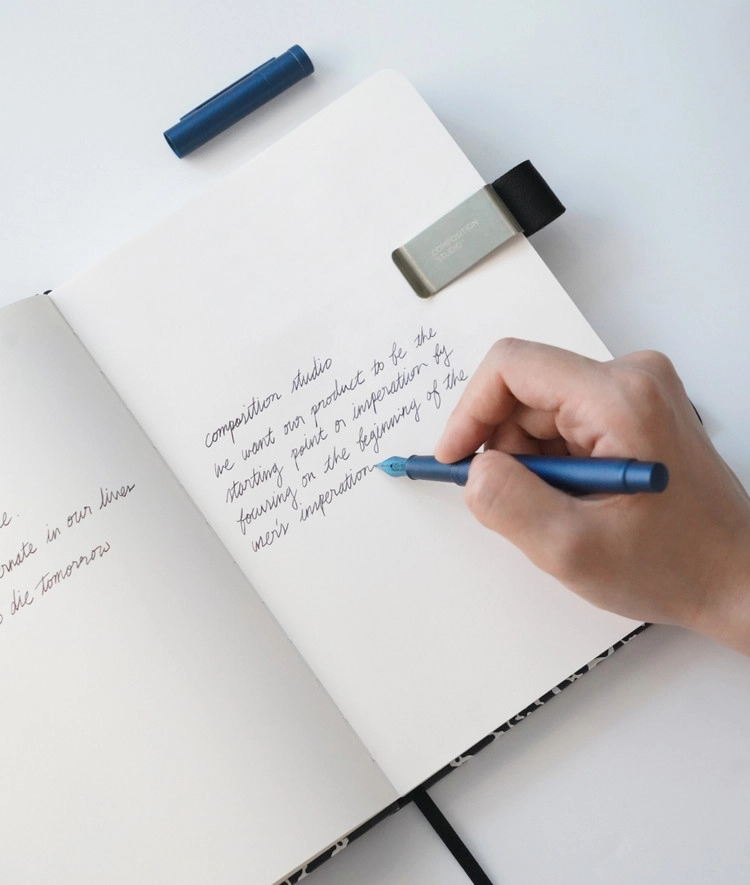 e.
rnate in our lives
die tomorrow
COMPOSITION
STUDIO
composition studio
we want our product to be the
starting point or insperation by
focusing on the beginning of the
user's insperation